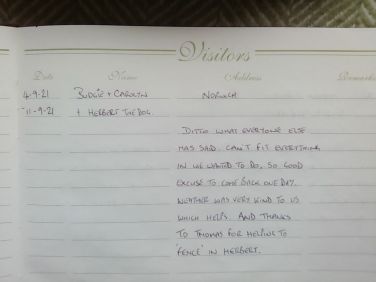 Visitors
Date Name Address Remarks
4-9-21 BUDGIE + CAROLYN NORWICH
-11-9-21 + HERBERT THE DOG.
DITTO WHAT EVERYONE ELSE
HAS SAID. CAN'T FIT EVERYTHING
IN WE WANTED TO DO, SO GOOD
EXCUSE TO COME BACK ONE DAY.
WEATHER WAS VERY KIND TO US
WHICH HELPS. AND THANKS
TO THOMAS FOR HELPING TO
'FENCE' IN HERBERT.